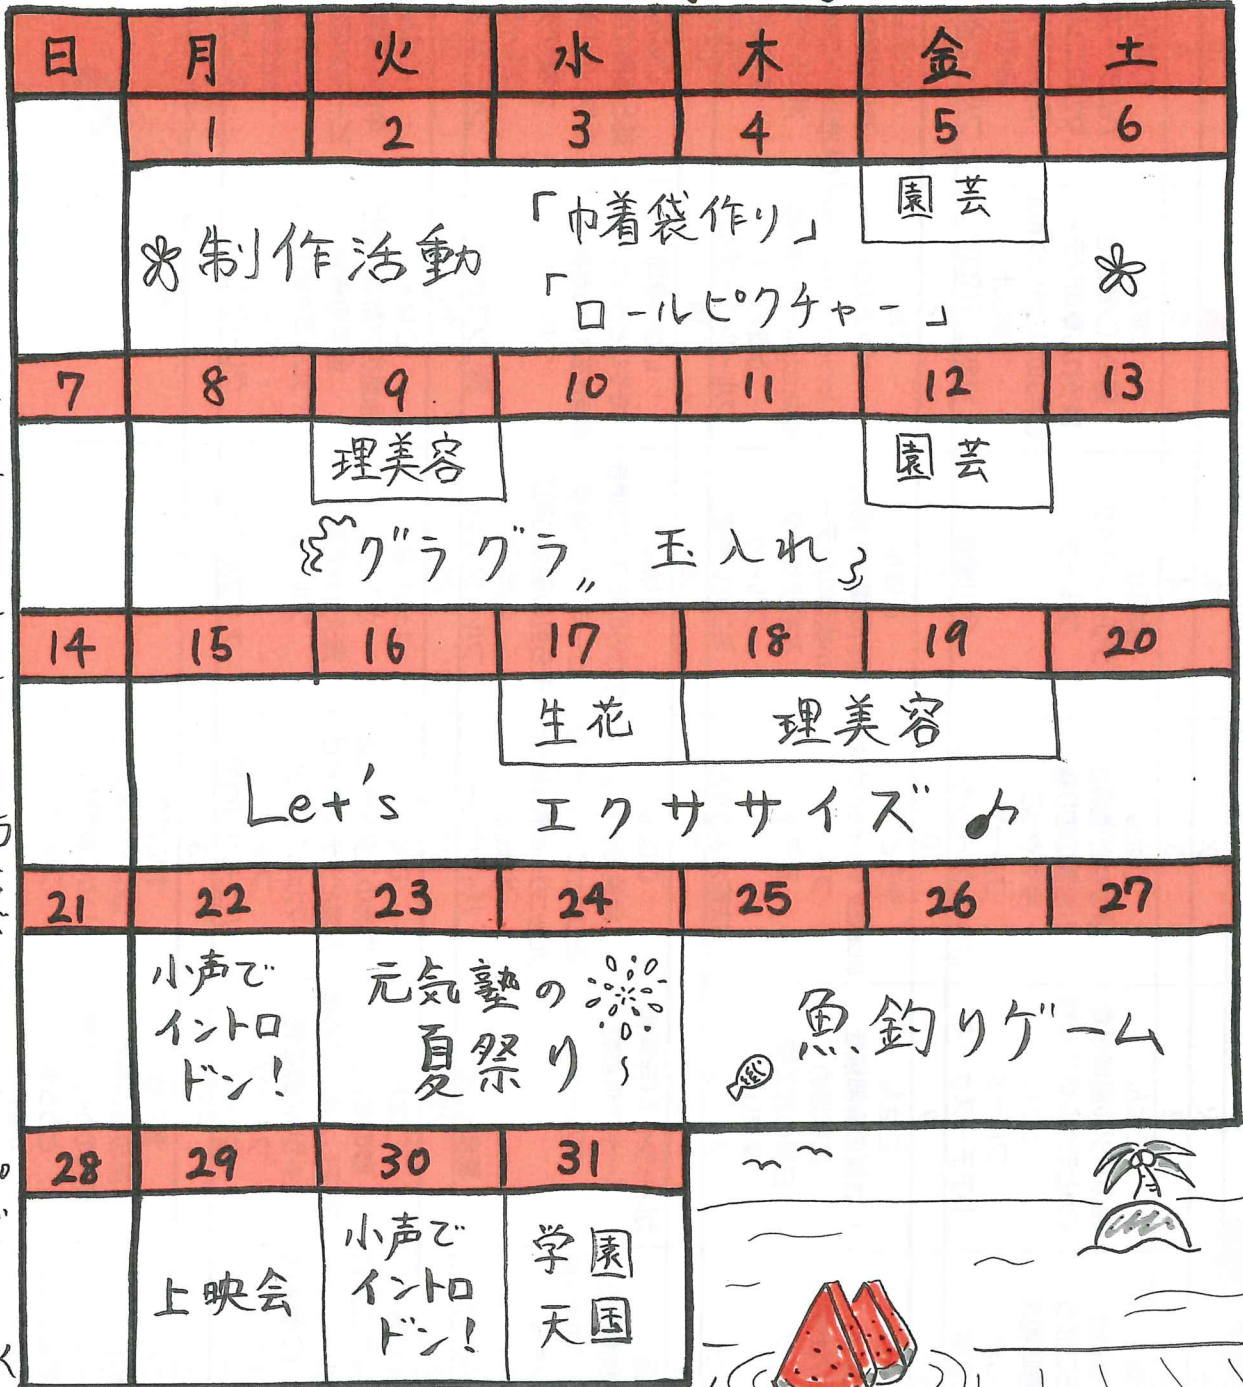 日 月 火 水 木 金 土
1 2 3 4 5 6
園芸
制作活動 「巾着袋作り」
「ロールピクチャー」
7 8 9 10 11 12 13
理美容 園芸
グラグラ 玉入れ
14 15 16 17 18 19 20
生花 理美容
Let's エクササイズ♪
21 22 23 24 25 26 27
小声で
イントロ
ドン!
元気塾の
夏祭り
魚釣りゲーム
28 29 30 31
上映会
小声で
イントロ
ドン!
学園
天国